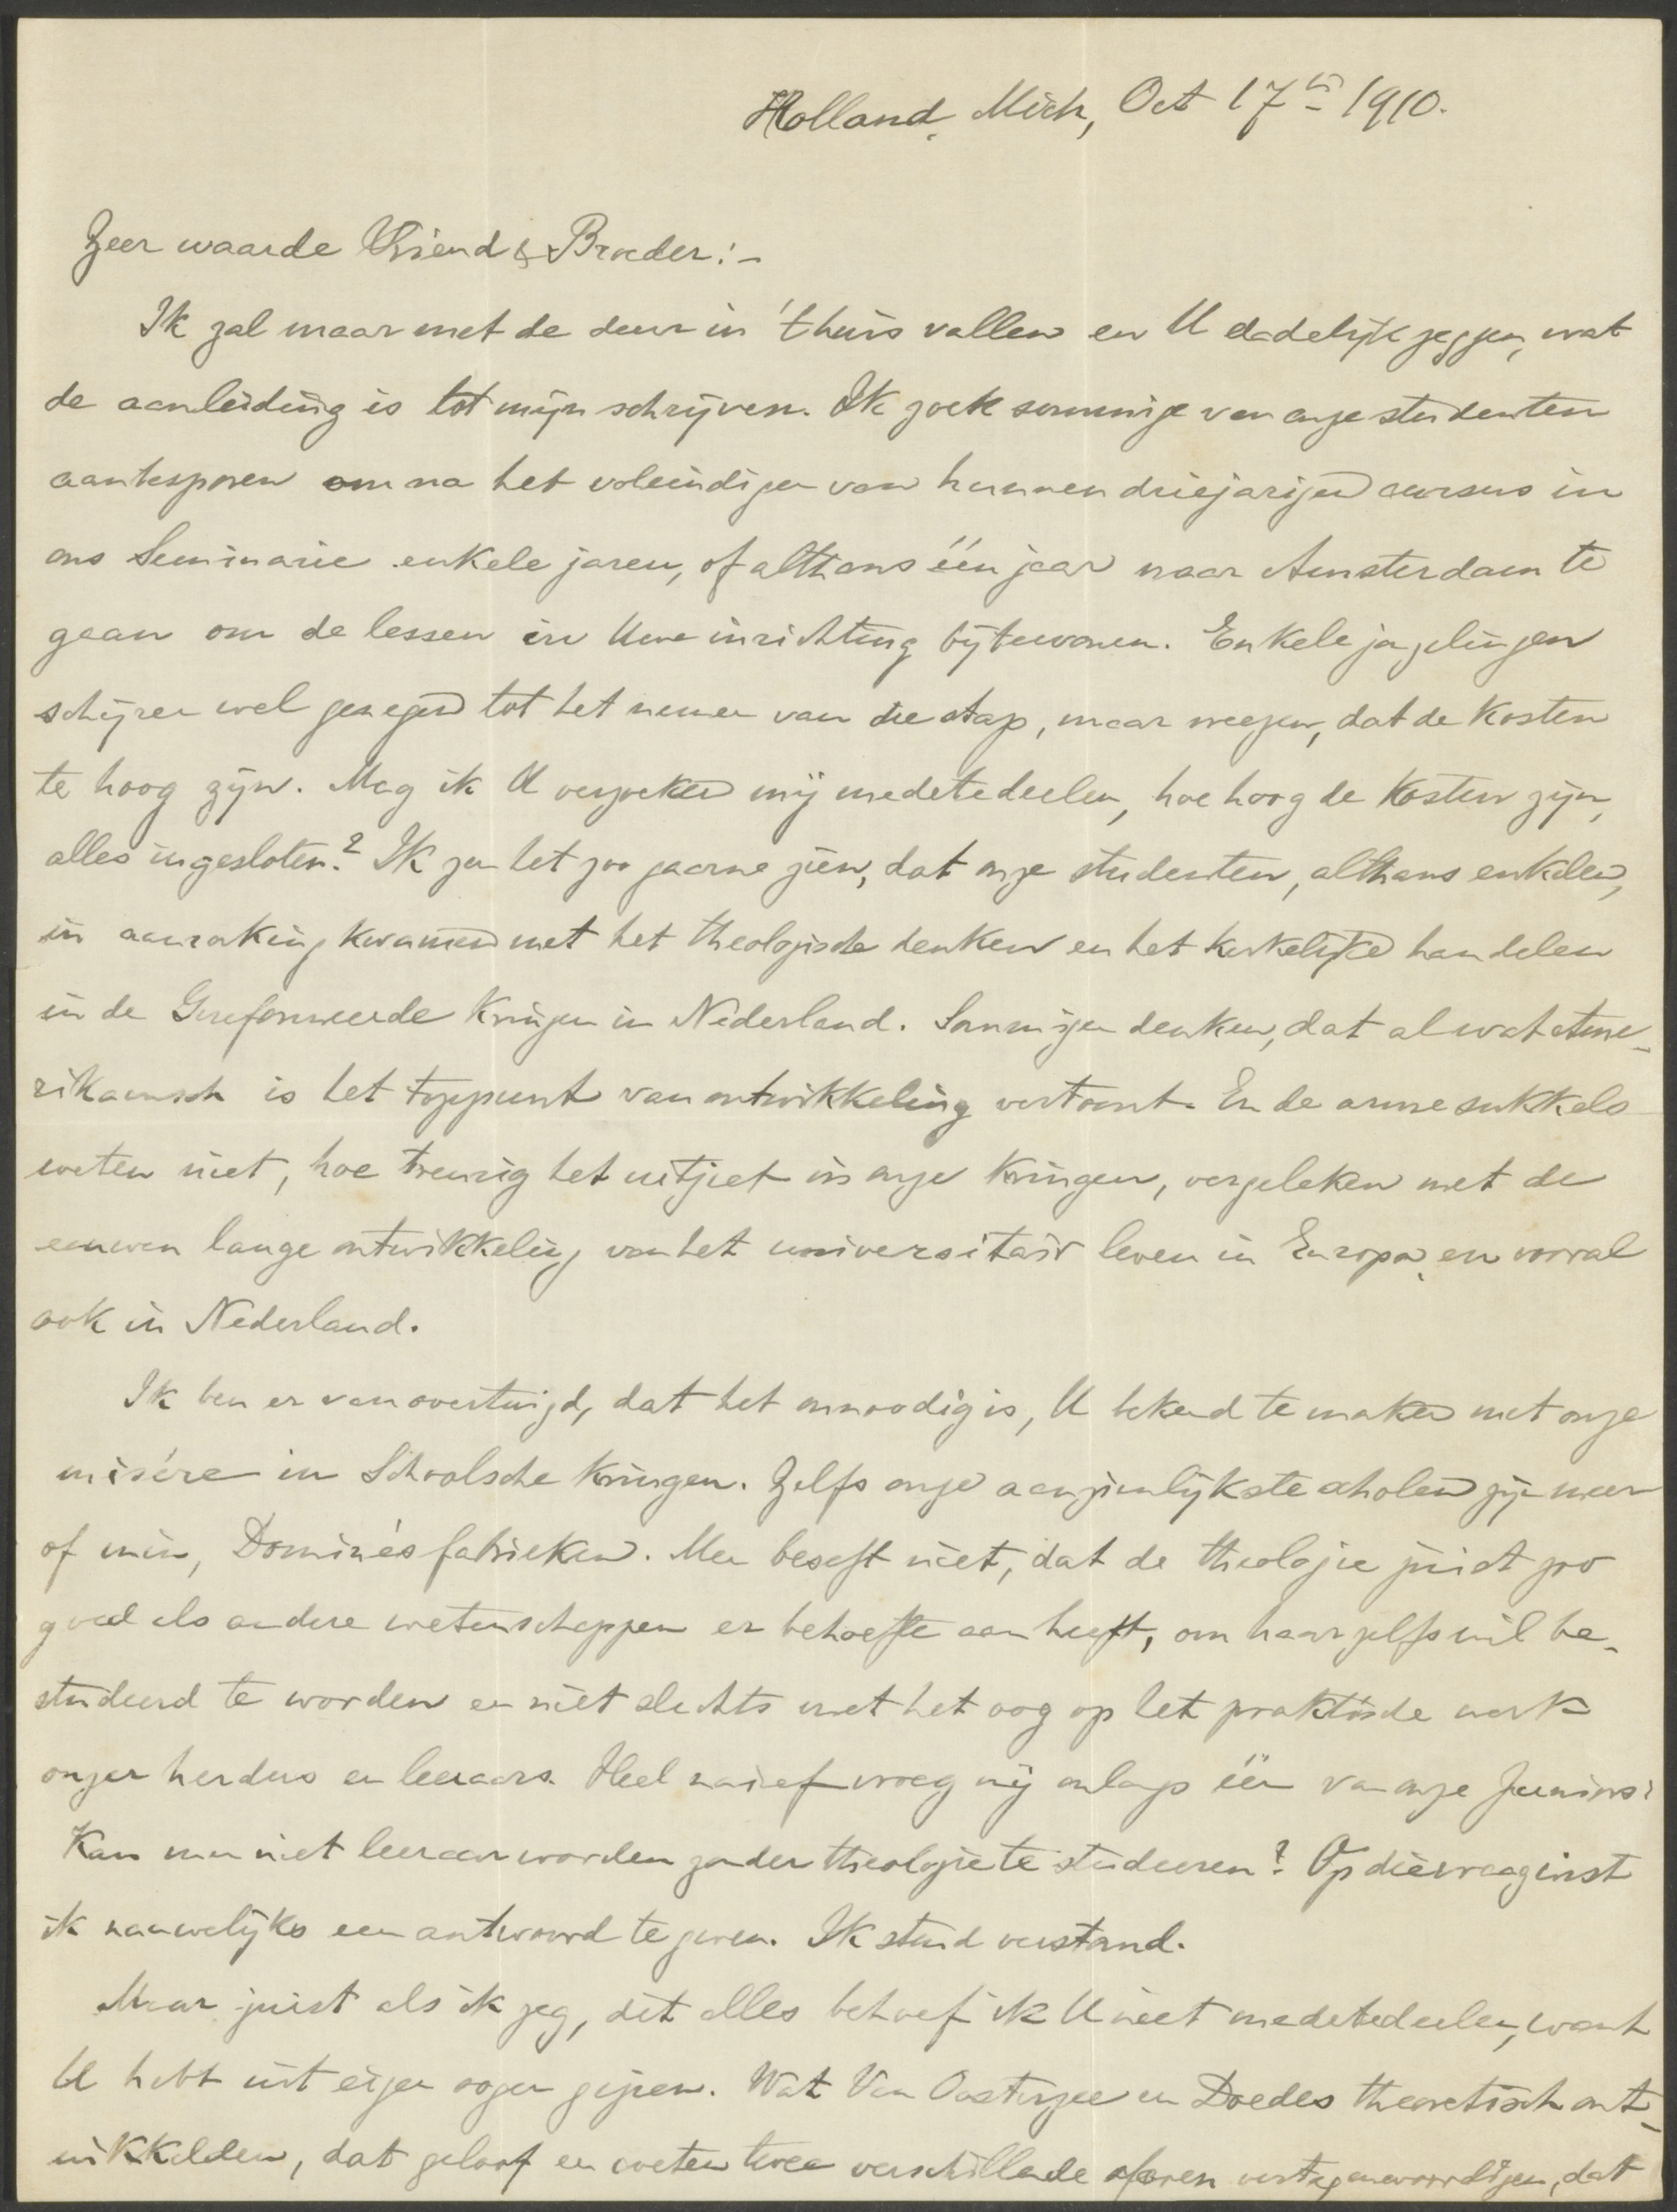 Holland, Mich, Oct 17th 1910.
Zeer waarde Vriend & Broeder:-
Ik zal maar met de deur in 't huis vallen en U dadelijk zeggen, wat
de aanleiding is tot mijn schrijven. Ik zoek sommige van onze studenten
aantesporen om na het voleindigen van hunnen driejarigen cursus in
ons Seminarie enkele jaren, of althans één jaar naar Amsterdam te
gaan om de lessen in Uwe inrichting bijtewonen. Enkele jongelingen
schijnen wel genegen tot het nemen van die stap, maar vreezen, dat de kosten
te hoog zijn. Mag ik U verzoeken mij medetedeelen, hoe hoog de kosten zijn,
alles ingesloten? Ik zou het zoo gaarne zien, dat onze studenten, althans enkelen,
in aanraking kwamen met het theologische denken en het kerkelijke handelen
in de Gereformeerde Kringen in Nederland. Sommigen denken, dat al wat Ame-
rikaansch is het toppunt van ontwikkeling vertoont. En de arme sukkels
weten niet, hoe treurig het uitziet in onze Kringen, vergeleken met de
eeuwen lange ontwikkeling van het universitair leven in Europa, en vooral
ook in Nederland.
Ik ben er van overtuigd, dat het onnoodig is, U bekend te maken met onze
misère in Schoolsche Kringen. Zelfs onze aanzienlijkste scholen zijn meer
of min, Dominé's fabrieken. Men beseft niet, dat de theologie juist zoo
goed als andere wetenschappen er behoefte aan heeft, om haar zelfs wil be-
studeerd te worden en niet slechts met het oog op het praktische werk
onzer herders en leeraars. Heel naïef vroeg mij onlangs één van onze Juniors:
Kan men niet leeraar worden zonder theologie te studeeren? Op die vraag wist
ik nauwelijks een antwoord te geven. Ik stond verstomd.
Maar juist als ik zeg, dit alles behoef ik U niet medetedeelen, want
U hebt uit eigen oogen gezien. Wat Van Oosterzee en Doedes theoretisch ont-
wikkelden, dat geloof en weten twee verschillende sferen vertegenwoordigen, dat